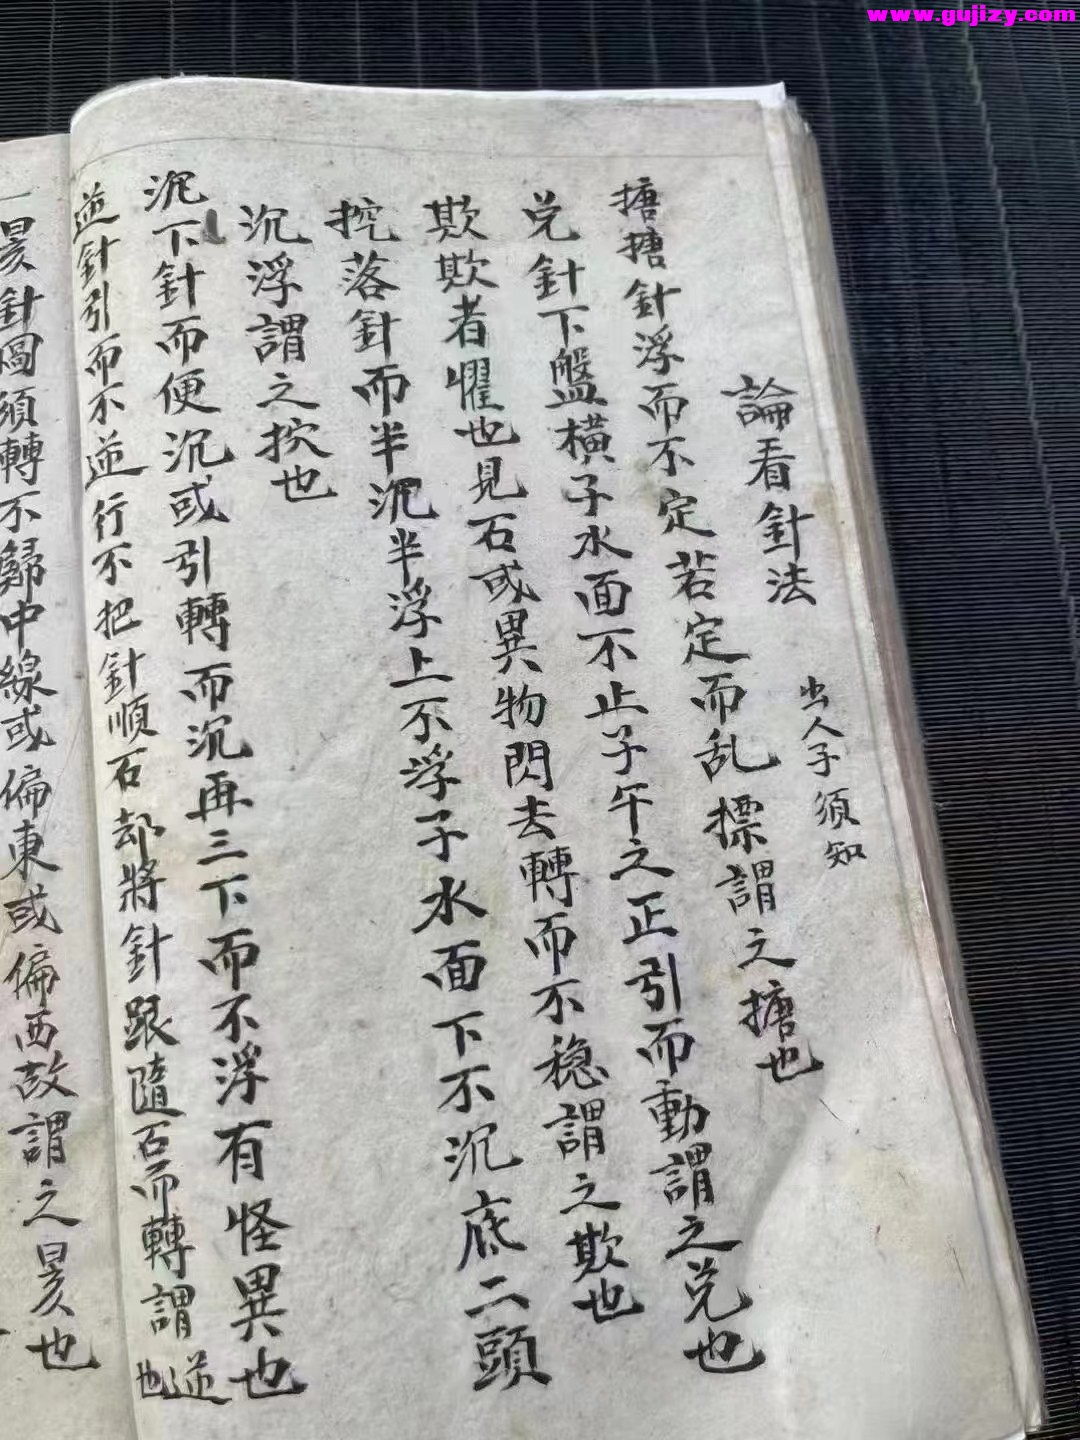 www.gujizy.com
論看針法
出人子須知
搪搪針浮而不定若定而乱摽謂之搪也
兌針下盤橫子水面不止子午之正引而動謂之兌也
欺欺者懼也見石或異物閃去轉而不稳謂之欺也
挖落針而半沉半浮上不浮子水面下不沉底二頭
沉浮謂之挖也
沉下針而便沉或引轉而沉再三下而不浮有怪異也
逆針引而不逆行不把針順石却將針跟隨石而轉謂逆也
針須轉不歸中線或偏東或偏西故謂之也